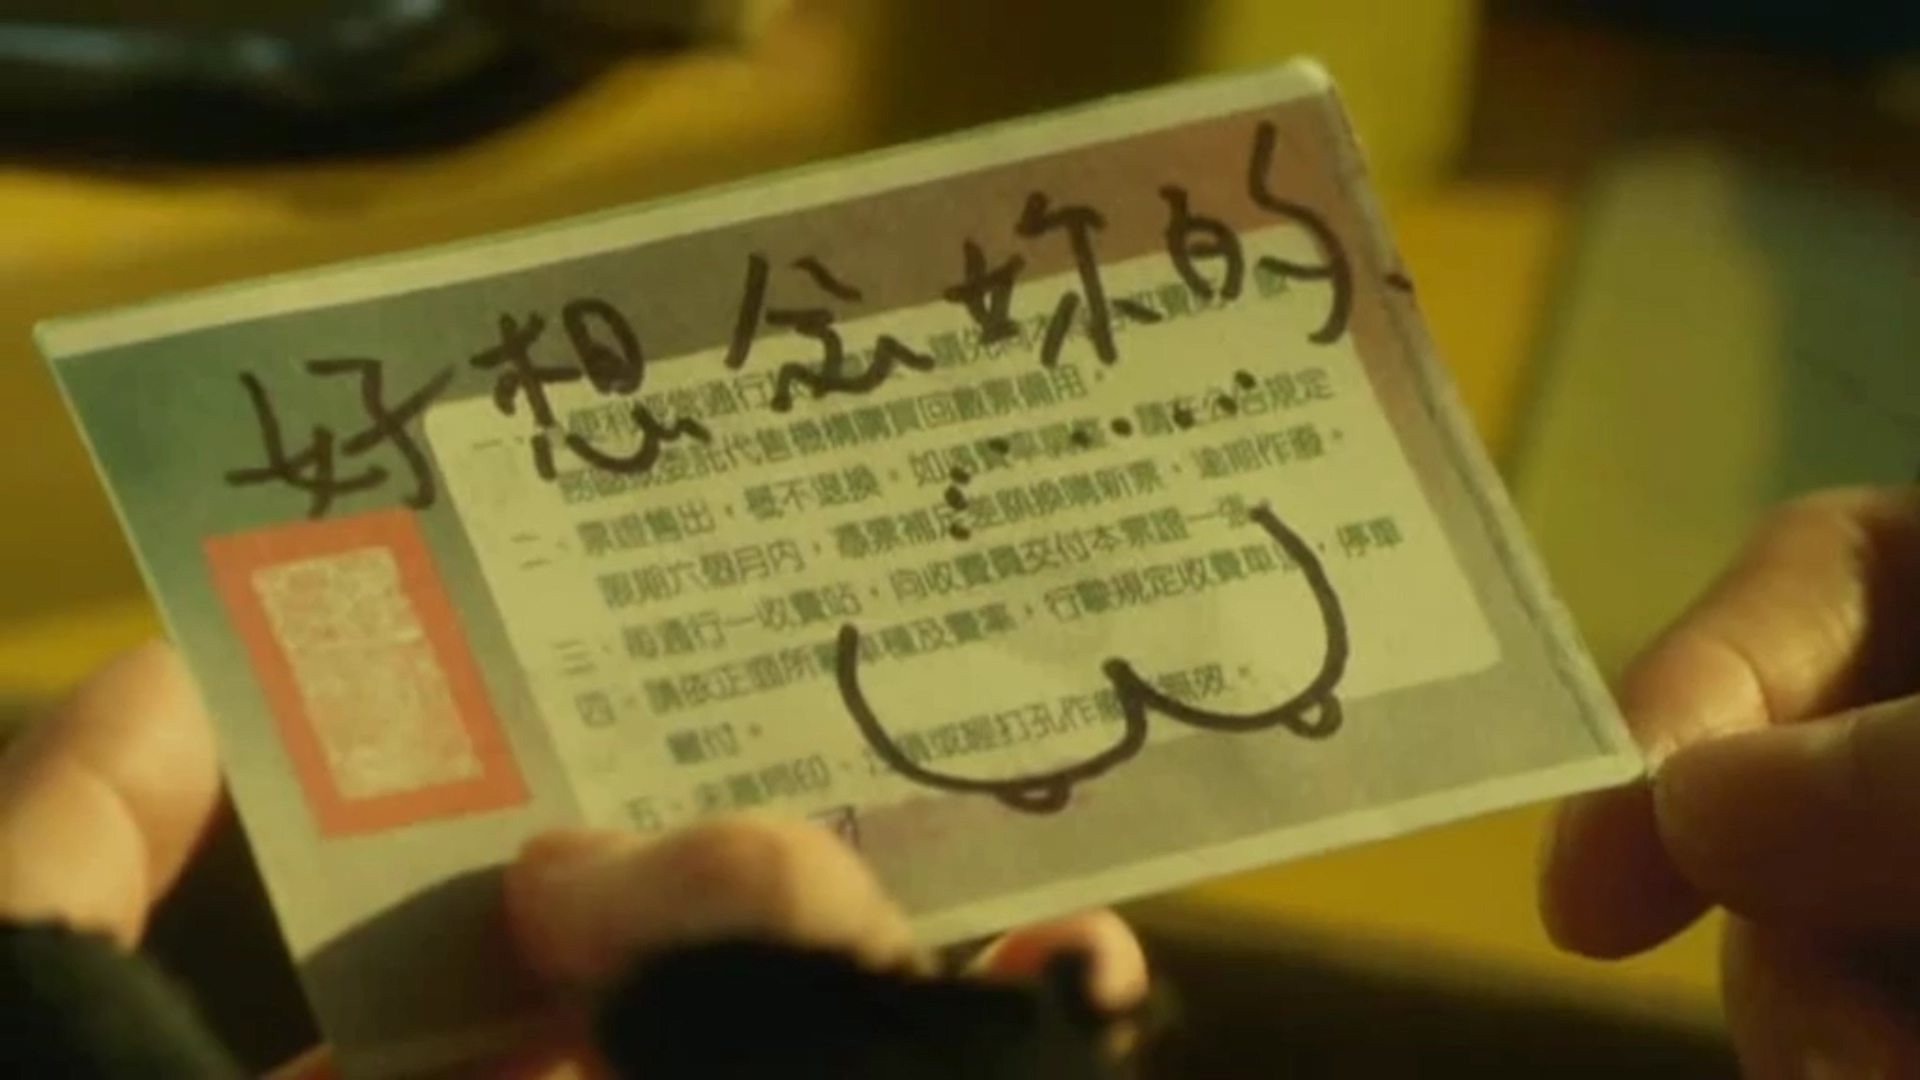 好想念妳的
務國或委託代售機構購買回數票備用。
二、票證售出，憂不退換。如遇費率調整，請在公告規定
限期六個月內，憑票補足差額換購新票，逾期作廢。
三、每通行一收費站，向收費員交付本票證一張。
四、請依正面所 車種及費率，行駛規定收費車道，停車
繳付。
五、 打孔作廢 無效。